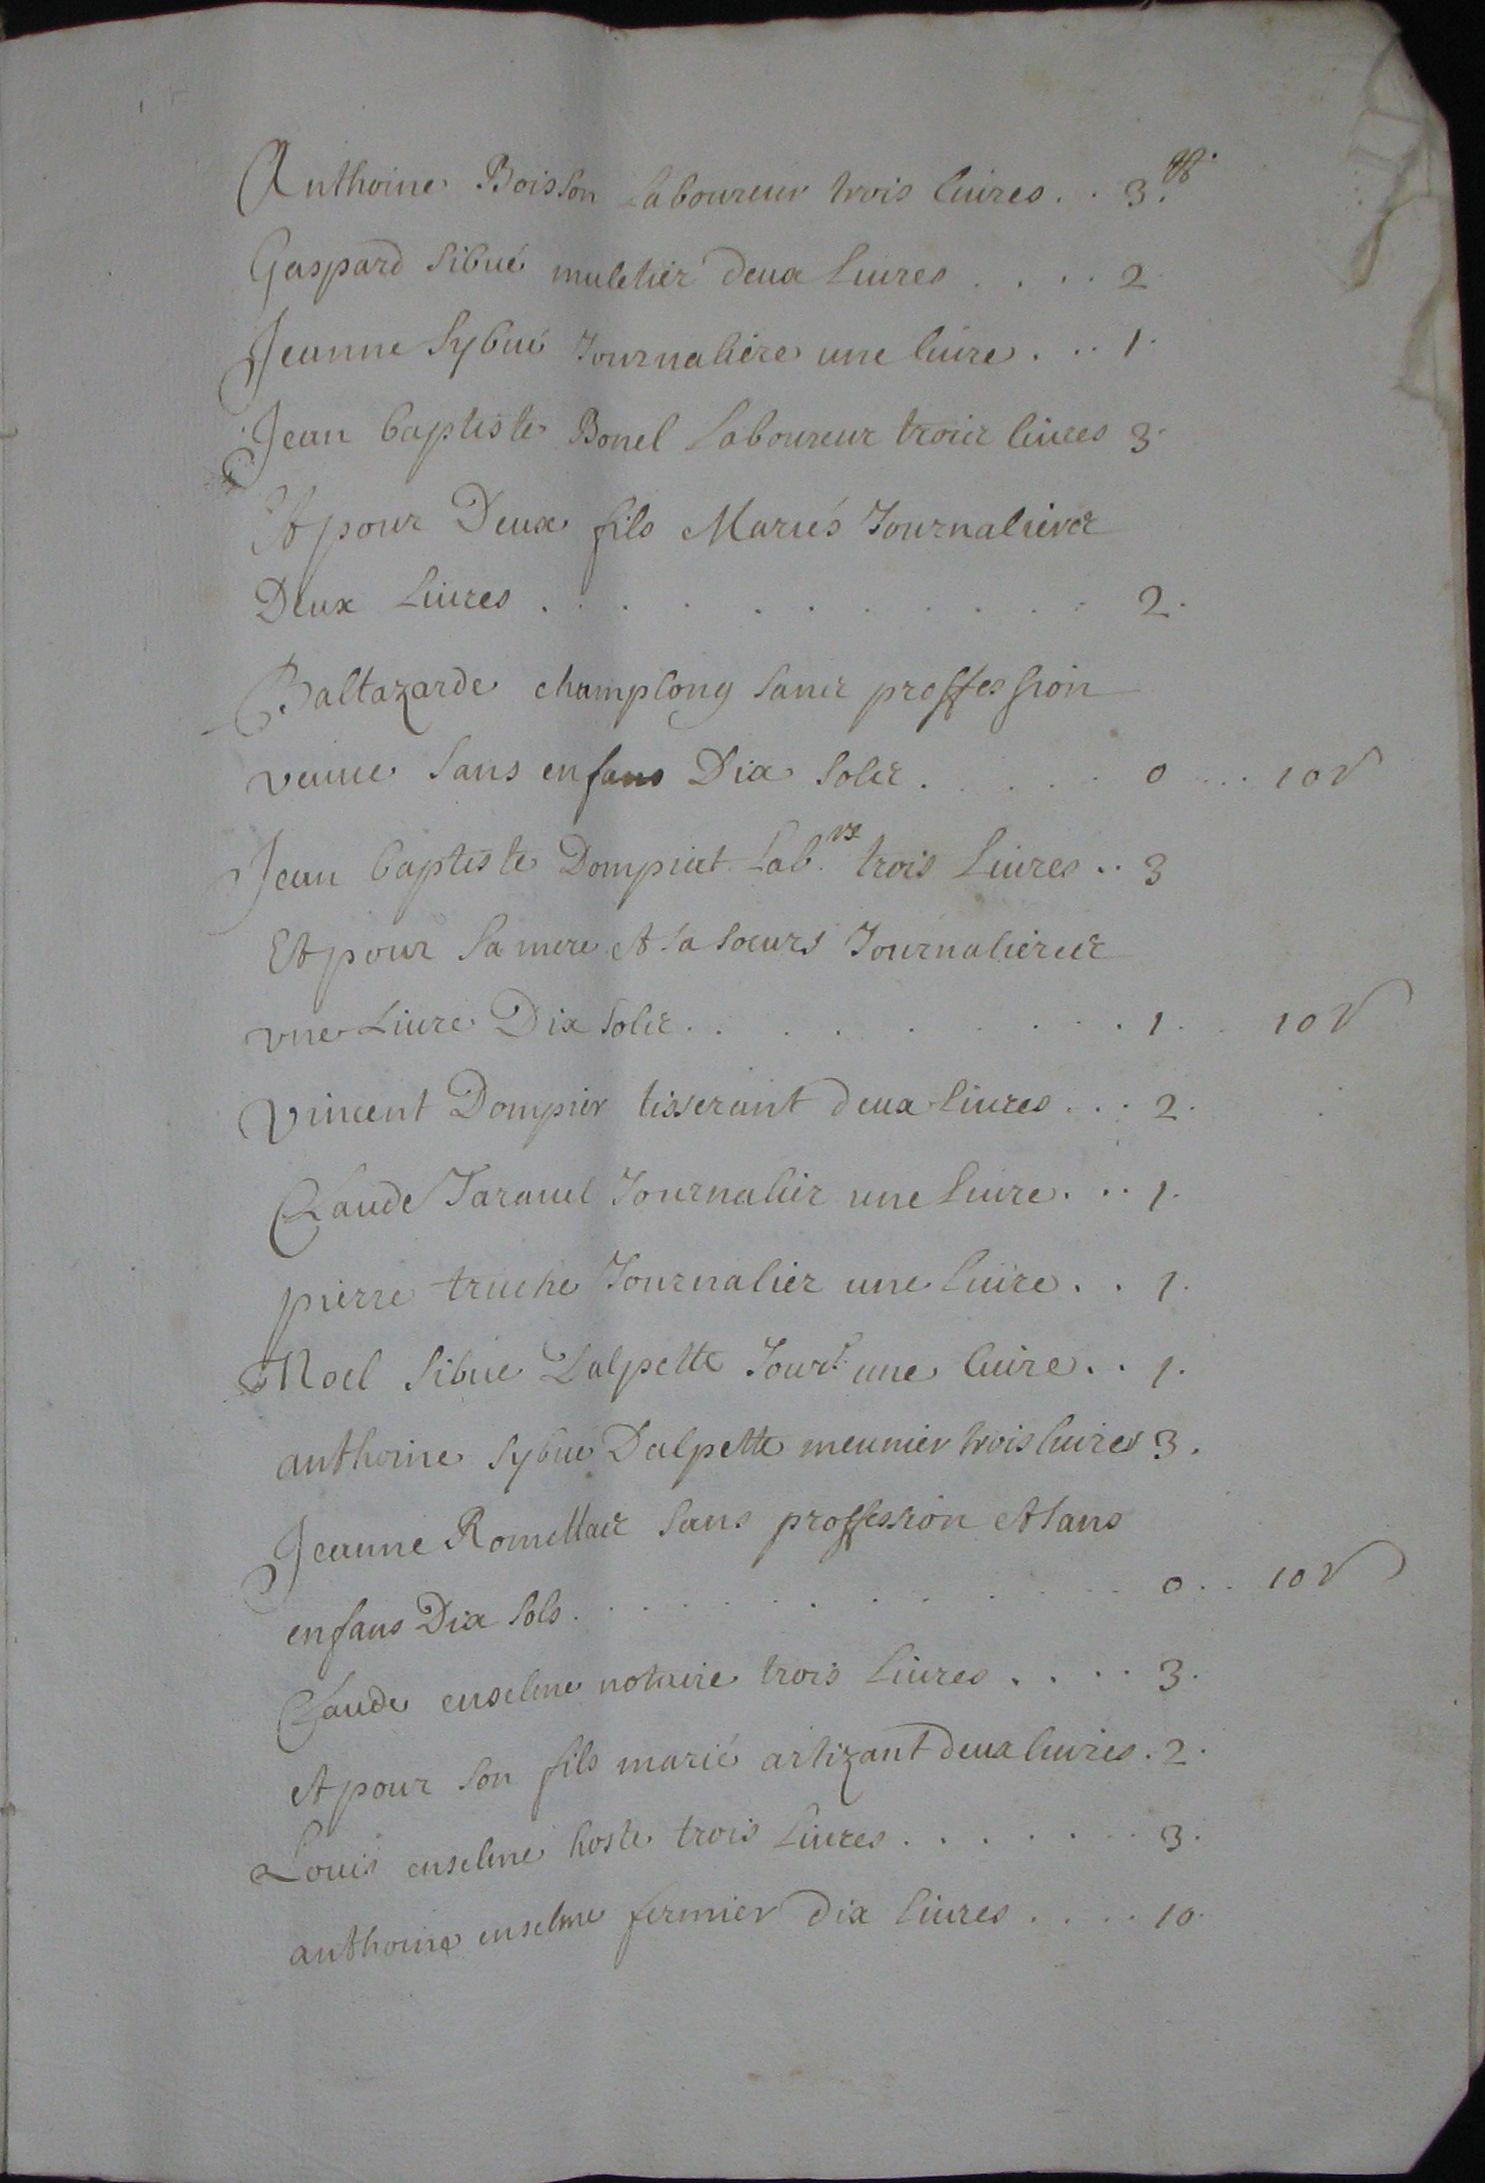 Anthoine Boisson Laboureur trois liures . . 3.tt
Gaspard Sibué muletier Deux Liures . . . . 2
Jeanne Sybué Journaliere une liure . . . 1.
Jean Baptiste Bonel Laboureur trois liures 3.
Et pour Deux fils Mariés Journaliers
Deux Liures . . . . . . . . . . 2.
Baltazarde champlong sans proffession
veuue sans enfans Dix Sols . . . . . 0 . . . 10 s
Jean Baptiste Dompiet Lab.rs trois Liures . . 3
Et pour sa mere et sa soeurs Journalieres
vne Liure Dix Sols . . . . . . . . 1 . . 10 s
Vincent Dompier tisserant deux liures . . . 2.
Claude Jarauel Journalier une liure . . . 1.
pierre truche Journalier une liure . . 1.
Noel Sibue Dalpette Jour.r une liure . . 1.
anthoine Sybué Dalpette meunier trois liures 3.
Jeanne sans proffession et sans
enfans Dix Sols . . . . . . . . . 0 . . 10 s
Claude enselme notaire trois Liures . . . . 3.
et pour son fils marié artizant deux liures . 2.
Louis enselme hoste trois Liures . . . . . . . 3.
anthoine enselme fermier Dix liures . . . . 10.